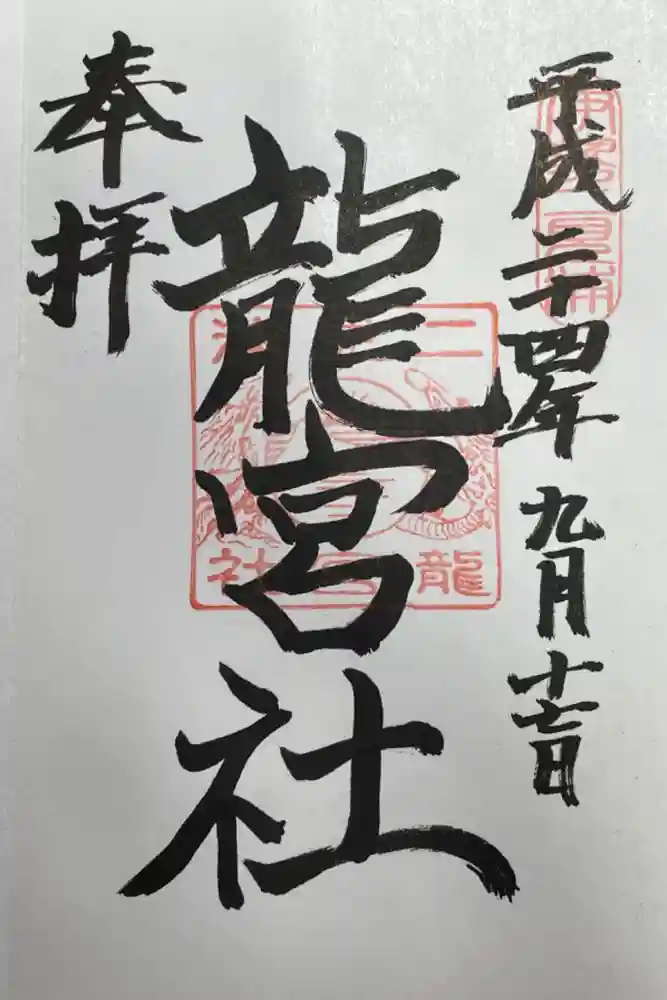 平成二十四年九月十七日
龍宮社
奉拝
龍宮社